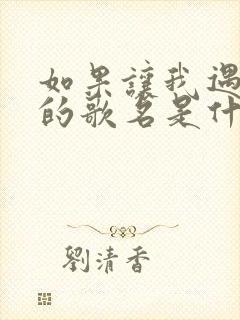 如果讓我遇
的歌名是什
劉清香